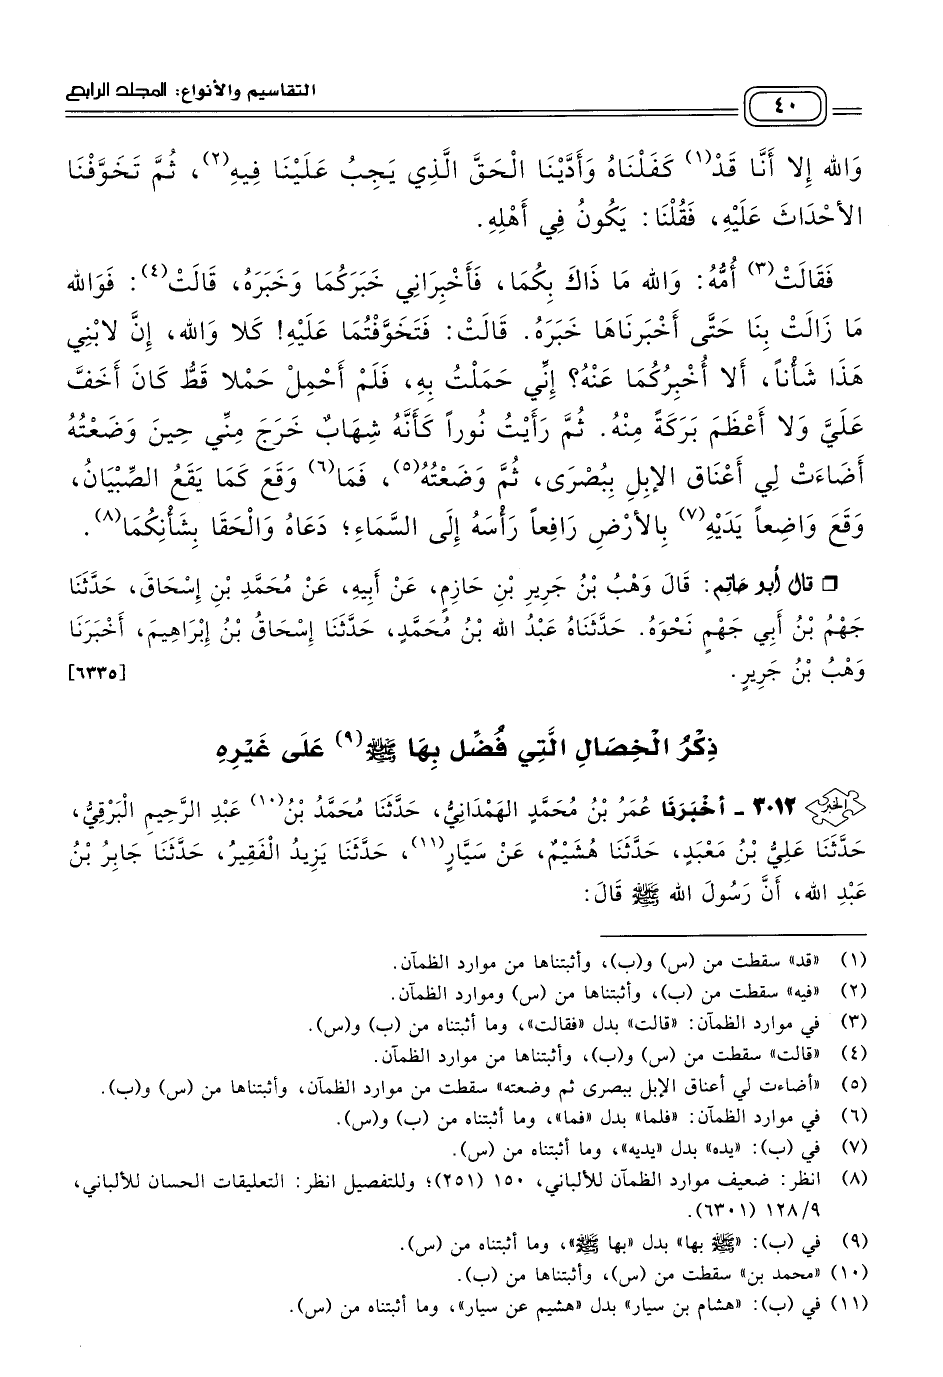 التقاسيم والأنواع: المجلد الرابع
٤٠
وَالله إِلا أَنَّا قَدْ(١) كَفَلْنَاهُ وَأَدَّيْنَا الْحَقَّ الَّذِي يَجِبُ عَلَيْنَا فِيهِ(٢)، ثُمَّ تَخَوَّفْنَا
الأَحْدَاثَ عَلَيْهِ، فَقُلْنَا: يَكُونُ فِي أَهْلِهِ.
فَقَالَتْ(٣) أُمُّهُ: وَالله مَا ذَاكَ بِكُمَا، فَأَخْبِرَانِي خَبَرَكُمَا وَخَبَرَهُ، قَالَتْ(٤): فَوَالله
مَا زَالَتْ بِنَا حَتَّى أَخْبَرنَاهَا خَبَرَهُ. قَالَتْ: فَتَخَوَّفْتُمَا عَلَيْهِ! كَلا وَالله، إِنَّ لابْنِي
هَذَا شَأْناً، أَلا أُخْبِرُكُمَا عَنْهُ؟ إِنِّي حَمَلْتُ بِهِ، فَلَمْ أَحْمِلْ حَمْلا قَطُّ كَانَ أَخَفَّ
عَلَيَّ وَلا أَعْظَمَ بَرَكَةً مِنْهُ. ثُمَّ رَأَيْتُ نُوراً كَأَنَّهُ شِهَابٌ خَرَجَ مِنِّي حِينَ وَضَعْتُهُ
أَضَاءَتْ لِي أَعْنَاق الإبِلِ بِبُصْرَى، ثُمَّ وَضَعْتُهُ(٥)، فَمَا(٦) وَقَعَ كَمَا يَقَعُ الصِّبْيَانُ،
وَقَعَ وَاضِعاً يَدَيْهِ(٧) بِالأَرْضِ رَافِعاً رَأْسَهُ إِلَى السَّمَاءِ؛ دَعَاهُ وَالْحَقَا بِشَأْنِكُمَا(٨).
❒ قال أبو حاتم: قَالَ وَهْبُ بْنُ جَرِيرِ بْنِ حَازِمٍ، عَنْ أَبِيهِ، عَنْ مُحَمَّدِ بْنِ إِسْحَاقَ، حَدَّثَنَا
جَهْمُ بْنُ أَبِي جَهْمٍ نَحْوَهُ. حَدَّثَنَاهُ عَبْدُ الله بْنُ مُحَمَّدٍ، حَدَّثَنَا إِسْحَاقُ بْنُ إِبْرَاهِيمَ، أَخْبَرَنَا
وَهْبُ بْنُ جَرِيرٍ. [٦٣٣٥]
ذِكْرُ الْخِصَالِ الَّتِي فُضِّل بِهَا ﷺ(٩) عَلَى غَيْرِهِ
الخبر ٣٠١٢ - أَخْبَرَنَا عُمَرُ بْنُ مُحَمَّدٍ الهَمْدَانِيُّ، حَدَّثَنَا مُحَمَّدُ بْنُ(١٠) عَبْدِ الرَّحِيمِ الْبَرْقِيُّ،
حَدَّثَنَا عَلِيُّ بْنُ مَعْبَدٍ، حَدَّثَنَا هُشَيْمٌ، عَنْ سَيَّارٍ(١١)، حَدَّثَنَا يَزِيدُ الْفَقِيرُ، حَدَّثَنَا جَابِرُ بْنُ
عَبْدِ الله، أَنَّ رَسُولَ الله ﷺ قَالَ:
(١) «قد» سقطت من (س) و(ب)، وأثبتناها من موارد الظمآن.
(٢) «فيه» سقطت من (ب)، وأثبتناها من (س) وموارد الظمآن.
(٣) في موارد الظمآن: «قالت» بدل «فقالت»، وما أثبتناه من (ب) و(س).
(٤) «قالت» سقطت من (س) و(ب)، وأثبتناها من موارد الظمآن.
(٥) «أضاءت لي أعناق الإبل ببصرى ثم وضعته» سقطت من موارد الظمآن، وأثبتناها من (س) و(ب).
(٦) في موارد الظمآن: «فلما» بدل «فما»، وما أثبتناه من (ب) و(س).
(٧) في (ب): «يده» بدل «يديه»، وما أثبتناه من (س).
(٨) انظر: ضعيف موارد الظمآن للألباني، ١٥٠ (٢٥١)؛ وللتفصيل انظر: التعليقات الحسان للألباني،
٩/ ١٢٨ (٦٣٠١).
(٩) في (ب): «ﷺ بها» بدل «بها ﷺ»، وما أثبتناه من (س).
(١٠) «محمد بن» سقطت من (س)، وأثبتناها من (ب).
(١١) في (ب): «هشام بن سيار» بدل «هشيم عن سيار»، وما أثبتناه من (س).